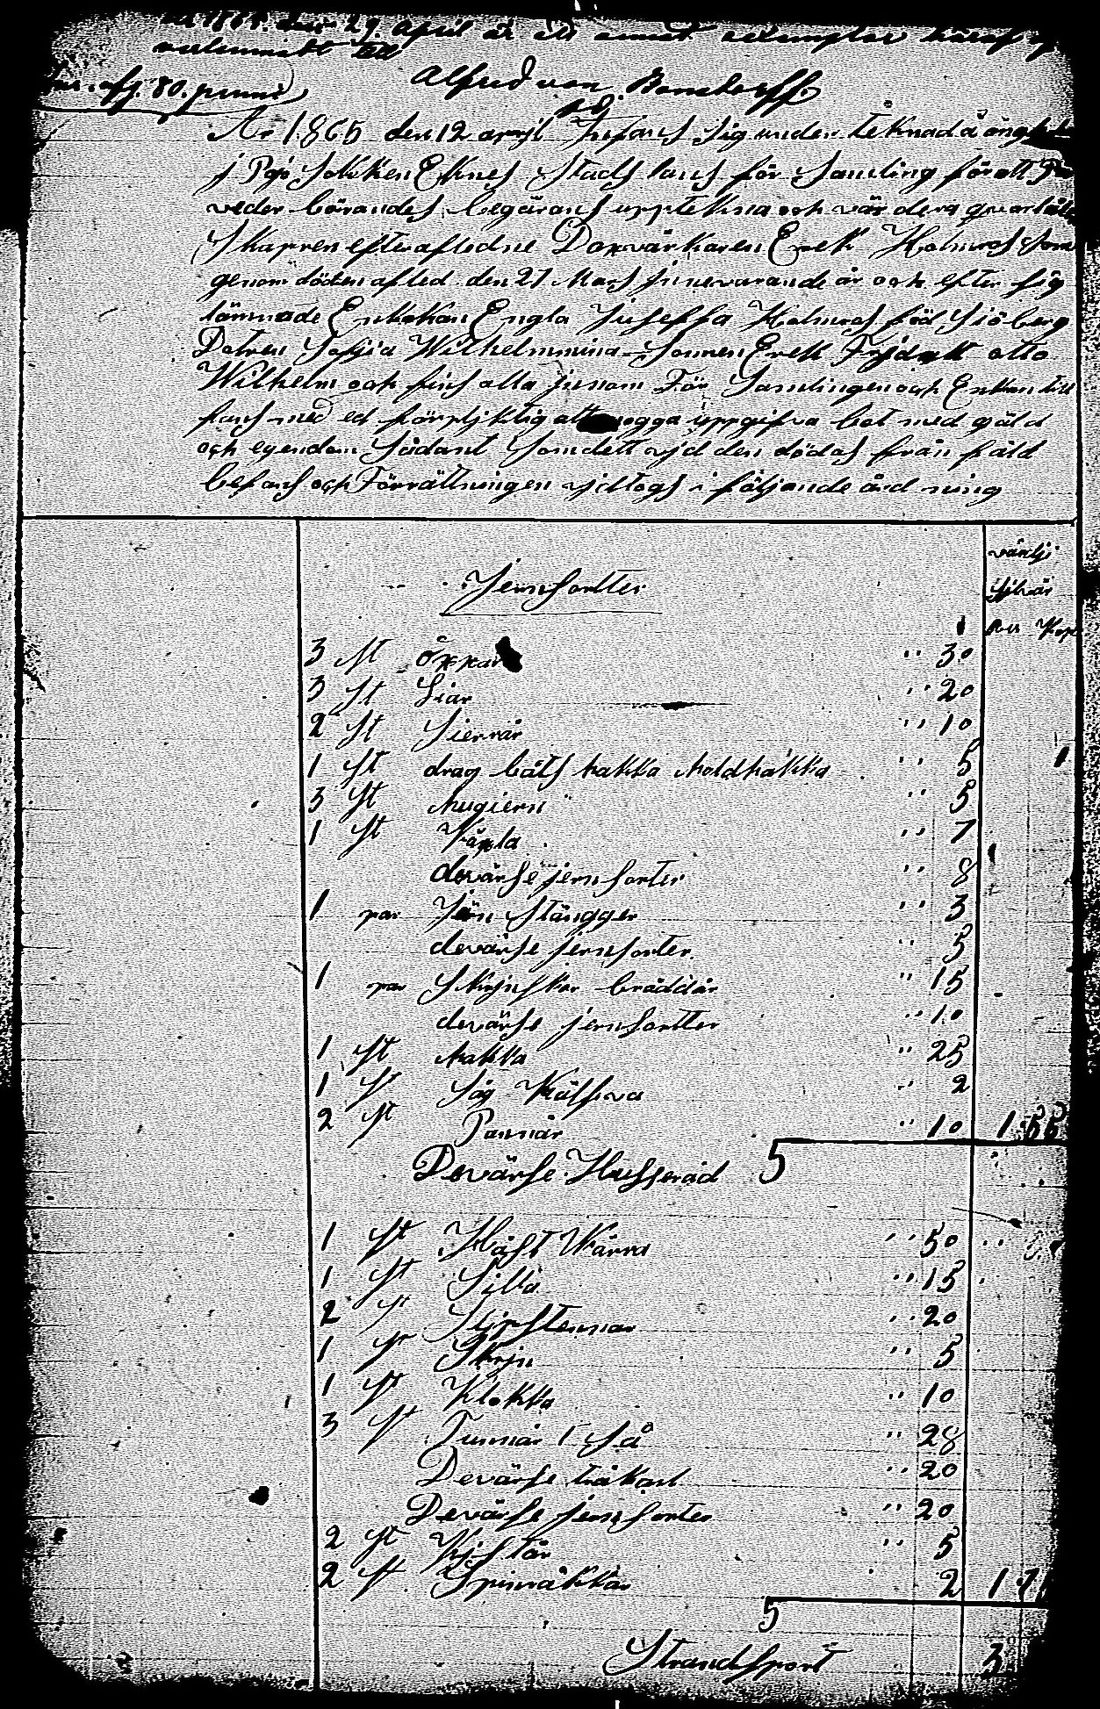 1865. den 29 April är ett annat exemplar häraf
utlemnadt till
afg. 80. penni
Alfred von Bonsdorff.
År 1865 den 12 april Infans sig under teknad å äng
j Pojo Sokken Eknes Stads lans för Samling för att På
veder börandes begärans uppteckna och värdera qvarlåten
Skappen efter aflednе Dagvärkaren Erek Holmros som
genom döden afled den 21 Mars innevarande år och efter sig
lämnade Enkekan Engla Jusefsa Holmros föd Siöberg
Dotren Sofia Wilhelmmina Sonnen Erek Fridrik otto
Wilhelm och fins alla innom För Samlingen och Enkan till
fans med ed förpliktig att nogga uppgifva bot med gäld
och egendom Sådant som dett vid den dödas från fäld
befans och Förrättningen vidtogs i följande ård ning
värdi
Silvär
Rub Kop
Jernsortter
3 St Öxxar " 30
3 St Liar " 20
2 St Sierrär " 10
1 St drag båts hakka holdhakka " 5
3 St hugiern " 5
1 St Växla " 7
devärse jern sorter " 8
1 par Järn Stängger " 3
devärse jernsorter " 5
1 par Skrjnskor bräddär " 15
devärse jernsortter " 10
1 St hakka " 25
1 St Såg Kälfva " 2
2 St Pannär " 10 1.55
Devärse Husgeråd 5
1 St Häst Kärra " 50
1 St Silla " 15
2 St Slipstennar " 20
1 St Skrjn " 5
1 St Klokka " 10
3 St Tunnär 1 så " 28
Devärse träkarl " 20
Devärse jernsorter " 20
2 St Kjstär " 5
2 St Spinräkkar 2 1
5
Strandsport 3